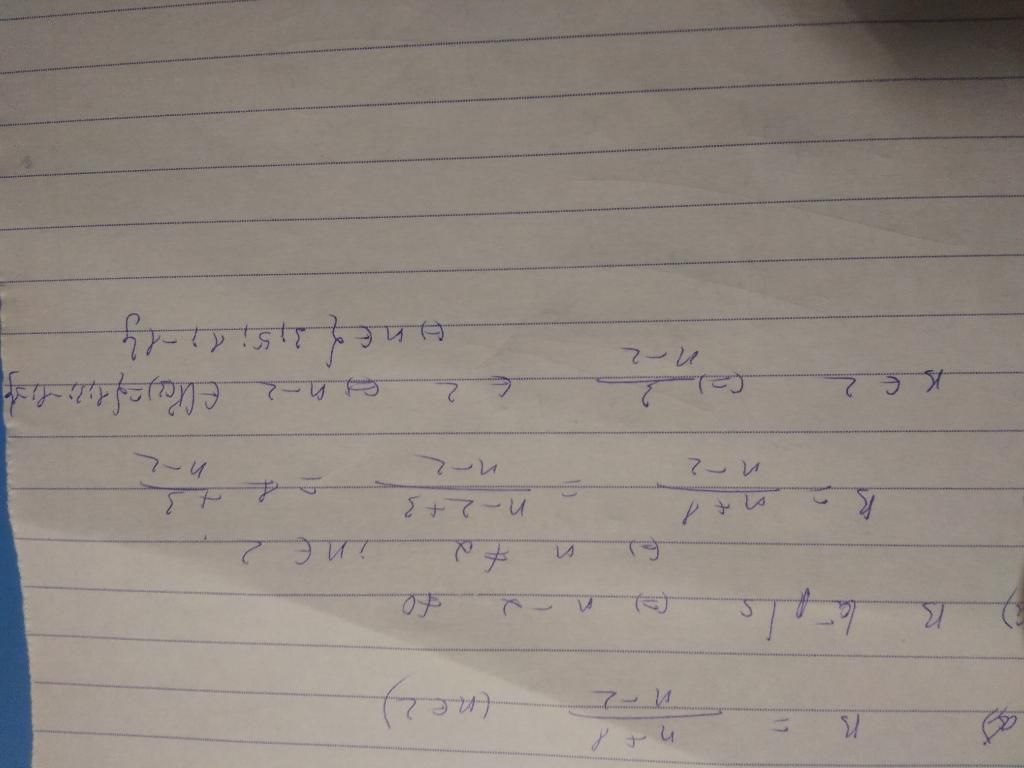 a) B = n+1/n-2 (n ∈ Z)
B là p/s (=) n - 2 ≠ 0
(=) n ≠ 2 ; n ∈ Z
B = n+1/n-2 = n-2+3/n-2 = 1 + 3/n-2
B ∈ Z (=) 2/n-2 ∈ Z (=) n-2
(=) n ∈ { 3; 5; 1; -1}